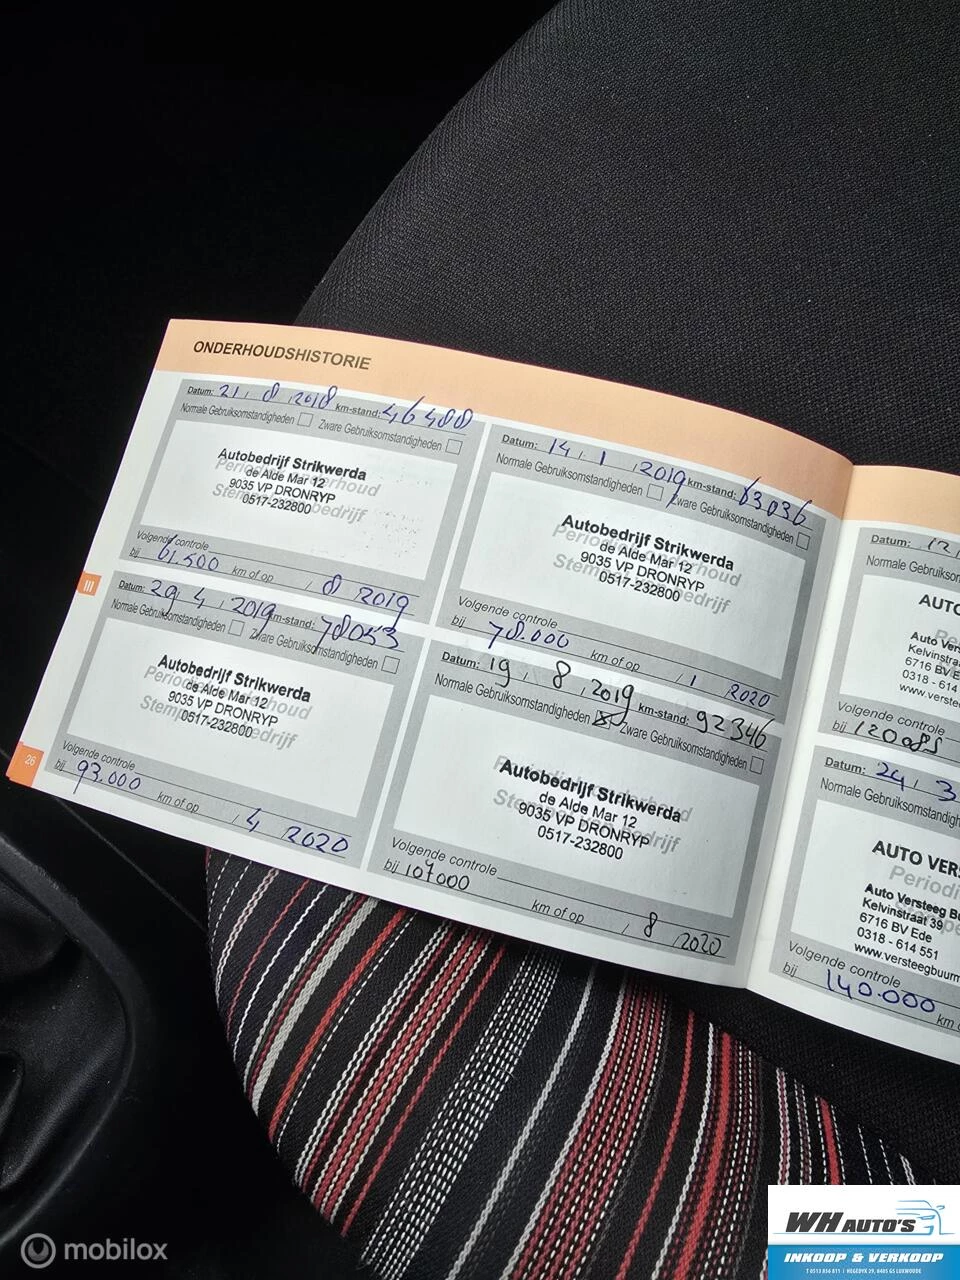 ONDERHOUDSHISTORIE
Datum: 21.8.2018 km-stand: 46488
Normale Gebruiksomstandigheden Zware Gebruiksomstandigheden
Autobedrijf Strikwerda
Periodiek onderhoud
de Alde Mar 12
9035 VP DRONRYP
Stempel bedrijf
0517-232800
Volgende controle
bij 61.500 km of op , 8 2019
Datum: 14,1,2019 km-stand: 63036
Normale Gebruiksomstandigheden Zware Gebruiksomstandigheden
Autobedrijf Strikwerda
Periodiek onderhoud
de Alde Mar 12
9035 VP DRONRYP
Stempel bedrijf
0517-232800
Volgende controle
bij 78.000 km of op , 1 2020
III
Datum: 29,4,2019 km-stand: 78053
Normale Gebruiksomstandigheden Zware Gebruiksomstandigheden
Autobedrijf Strikwerda
Periodiek onderhoud
de Alde Mar 12
9035 VP DRONRYP
Stempel bedrijf
0517-232800
Volgende controle
bij 93.000 km of op , 4 2020
Datum: 19,8,2019 km-stand: 92346
Normale Gebruiksomstandigheden Zware Gebruiksomstandigheden
Autobedrijf Strikwerda
Periodiek onderhoud
de Alde Mar 12
9035 VP DRONRYP
Stempel bedrijf
0517-232800
Volgende controle
bij 107000 km of op , 8 2020
26
Datum: 12
Normale Gebruiksom
AUTO
Auto Vers
Kelvinstraa
6716 BV E
0318 - 614
www.verste
Volgende controle
bij 120085
Datum: 24,3
Normale Gebruiksomstandigh
AUTO VERS
Periodi
Auto Versteeg B
Kelvinstraat 39
6716 BV Ede
0318 - 614 551
www.versteegbuurm
Volgende controle
bij 140.000 km
mobilox
WH AUTO'S
INKOOP & VERKOOP
T 0513 856 811 | HEGEDYK 29, 8405 GS LUXWOUDE